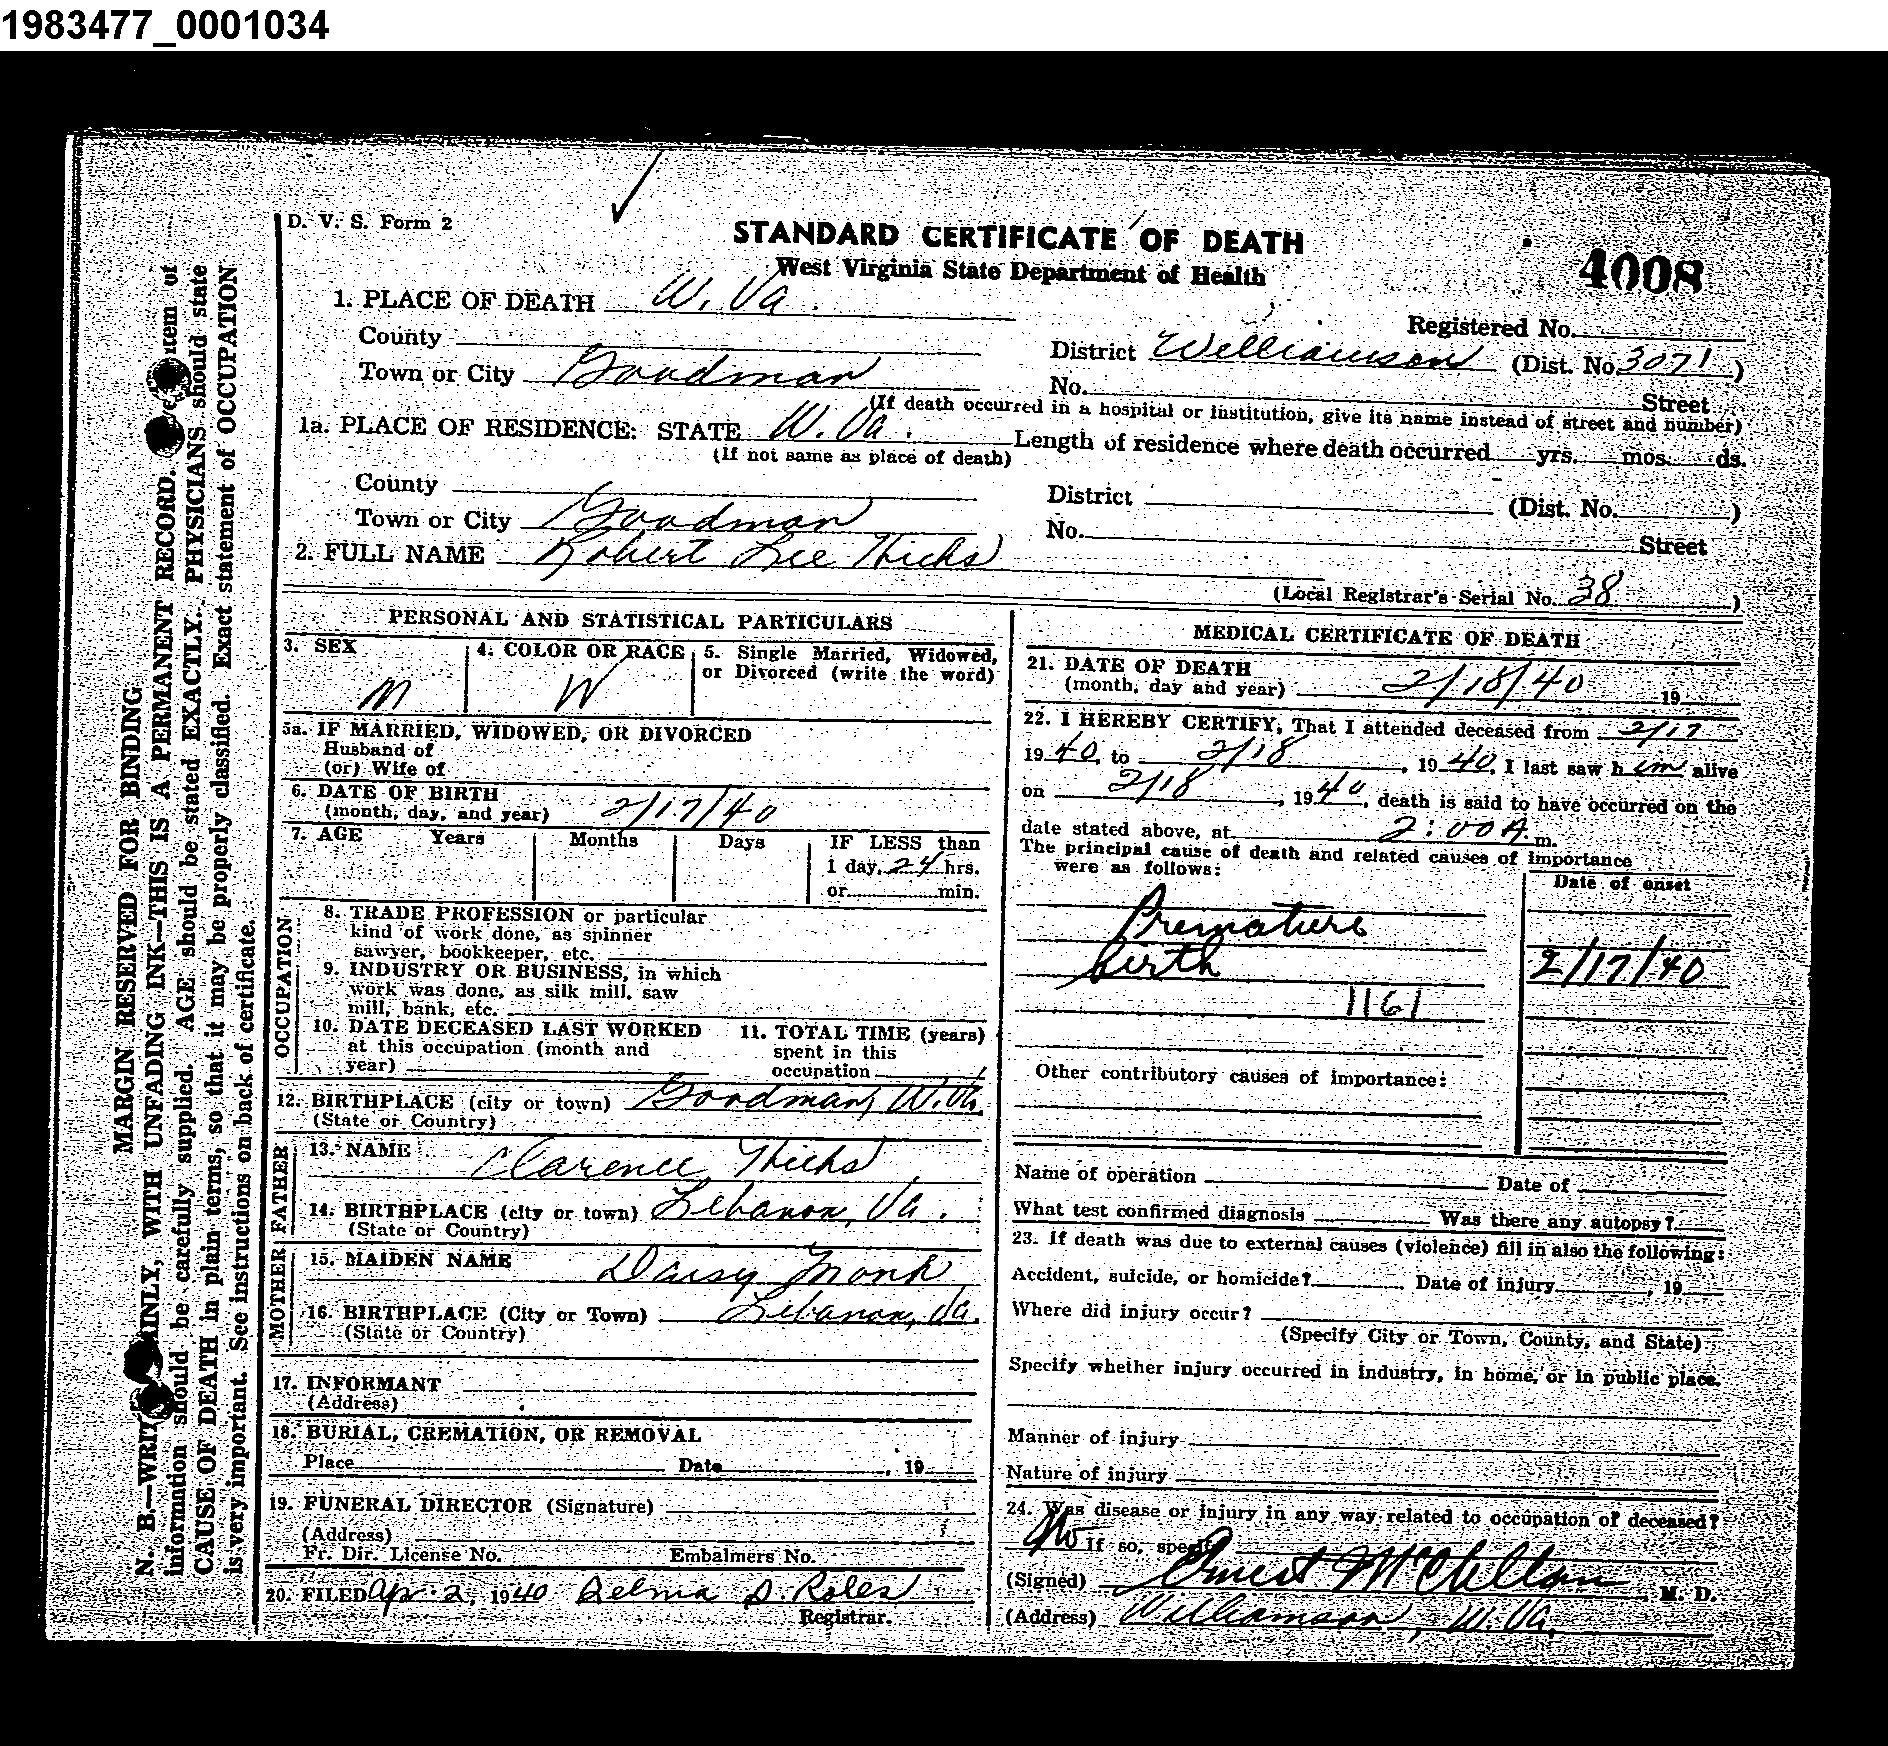 1983477_0001034
D. V. S. Form 2
STANDARD CERTIFICATE OF DEATH
West Virginia State Department of Health
4008
1. PLACE OF DEATH W. Va.
Registered No.
County
District Williamson (Dist. No. 3071)
Town or City Goodman
No. Street
(If death occurred in a hospital or institution, give its name instead of street and number)
1a. PLACE OF RESIDENCE: STATE W. Va.
(If not same as place of death)
Length of residence where death occurred yrs. mos. ds.
County
District (Dist. No. )
Town or City Goodman
No. Street
2. FULL NAME Robert Lee Hicks
(Local Registrar's Serial No. 38 )
PERSONAL AND STATISTICAL PARTICULARS
3. SEX M
4. COLOR OR RACE W
5. Single Married, Widowed, or Divorced (write the word)
5a. IF MARRIED, WIDOWED, OR DIVORCED
Husband of
(or) Wife of
6. DATE OF BIRTH
(month, day, and year) 2/17/40
7. AGE Years Months Days IF LESS than
1 day, 24 hrs.
or min.
OCCUPATION
8. TRADE PROFESSION or particular
kind of work done, as spinner
sawyer, bookkeeper, etc.
9. INDUSTRY OR BUSINESS, in which
work was done, as silk mill, saw
mill, bank, etc.
10. DATE DECEASED LAST WORKED
at this occupation (month and
year)
11. TOTAL TIME (years)
spent in this
occupation
12. BIRTHPLACE (city or town) Goodman, W. Va.
(State or Country)
FATHER
13. NAME Clarence Hicks
14. BIRTHPLACE (city or town) Lebanon, Va.
(State or Country)
MOTHER
15. MAIDEN NAME Daisy Monk
16. BIRTHPLACE (City or Town) Lebanon, Va.
(State or Country)
17. INFORMANT
(Address)
18. BURIAL, CREMATION, OR REMOVAL
Place Date , 19
19. FUNERAL DIRECTOR (Signature)
(Address)
Fr. Dir. License No. Embalmers No.
20. FILED Apr. 2, 1940 Delma S. Roles
Registrar.
MEDICAL CERTIFICATE OF DEATH
21. DATE OF DEATH
(month, day and year) 2/18/40 19
22. I HEREBY CERTIFY, That I attended deceased from 2/17
1940, to 2/18, 1940, I last saw him alive
on 2/18, 1940, death is said to have occurred on the
date stated above, at 2:00 A. m.
The principal cause of death and related causes of importance
were as follows:
Date of onset
Premature
birth 2/17/40
1161
Other contributory causes of importance:
Name of operation Date of
What test confirmed diagnosis Was there any autopsy?
23. If death was due to external causes (violence) fill in also the following:
Accident, suicide, or homicide? Date of injury , 19
Where did injury occur?
(Specify City or Town, County, and State)
Specify whether injury occurred in industry, in home, or in public place.
Manner of injury
Nature of injury
24. Was disease or injury in any way related to occupation of deceased?
No If so, specify
(Signed) M. D.
(Address) Williamson, W. Va.
MARGIN RESERVED FOR BINDING
INLY, WITH UNFADING INK—THIS IS A PERMANENT RECORD.
information should be carefully supplied. AGE should be stated EXACTLY. PHYSICIANS should state
CAUSE OF DEATH in plain terms, so that it may be properly classified. Exact statement of OCCUPATION
is very important. See instructions on back of certificate.